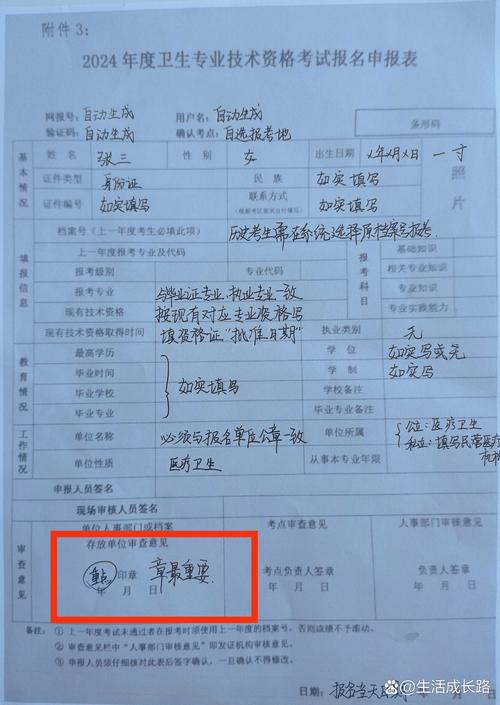 附件3：
2024年度卫生专业技术资格考试报名申报表
网报号：自动生成 用户名：自动生成
验证码：自动生成 确认考点：自选报考地 条形码
基本情况 姓名 张三 性别 女 出生日期 X年X月X日 一寸照片
证件类型 身份证 民族 如实填写
证件编号 如实填写 联系方式（根据考区要求自行填写） 如实填写
填报信息 档案号（上一年度考生必填此项） 历史考生需在系统选择原档案号报考
上一年度报考专业及代码 报考科目 基础知识
报考级别 专业代码 相关专业知识
报考专业 与毕业证专业,执业专业一致 专业知识
现有技术资格 按现有对应专业资格写 专业实践能力
现有技术资格取得时间 填资格证"批准日期" 执业类别 无
教育情况 最高学历 学位 如实写或无
毕业时间 如实填写 学制 如实写
毕业学校 学校备注
毕业专业 毕业专业备注
工作情况 单位名称 必须与报名单位公章一致 单位所属 公立：医疗卫生
私立：填写民营医疗机构
单位性质 医疗卫生 从事本专业年限
申报人员签名
现场审核人员签名
审查意见 单位人事部门或档案 考点审查意见 人事部门审核意见
存放单位审查意见
重点 印章 章最重要 考点负责人签章 负责人签章
年 月 日 年 月 日 年 月 日
备注：① 上一年度考试未通过者在报考时须使用上一年度的档案号，否则成绩不予滚动。
② 审查意见栏中“人事部门审核意见”即发证机构审核意见。
③ 申报人员须仔细核对此表后签字确认，一旦确认不得修改。
日期：报名当天日期 年 月 日
百家号/生活成长路